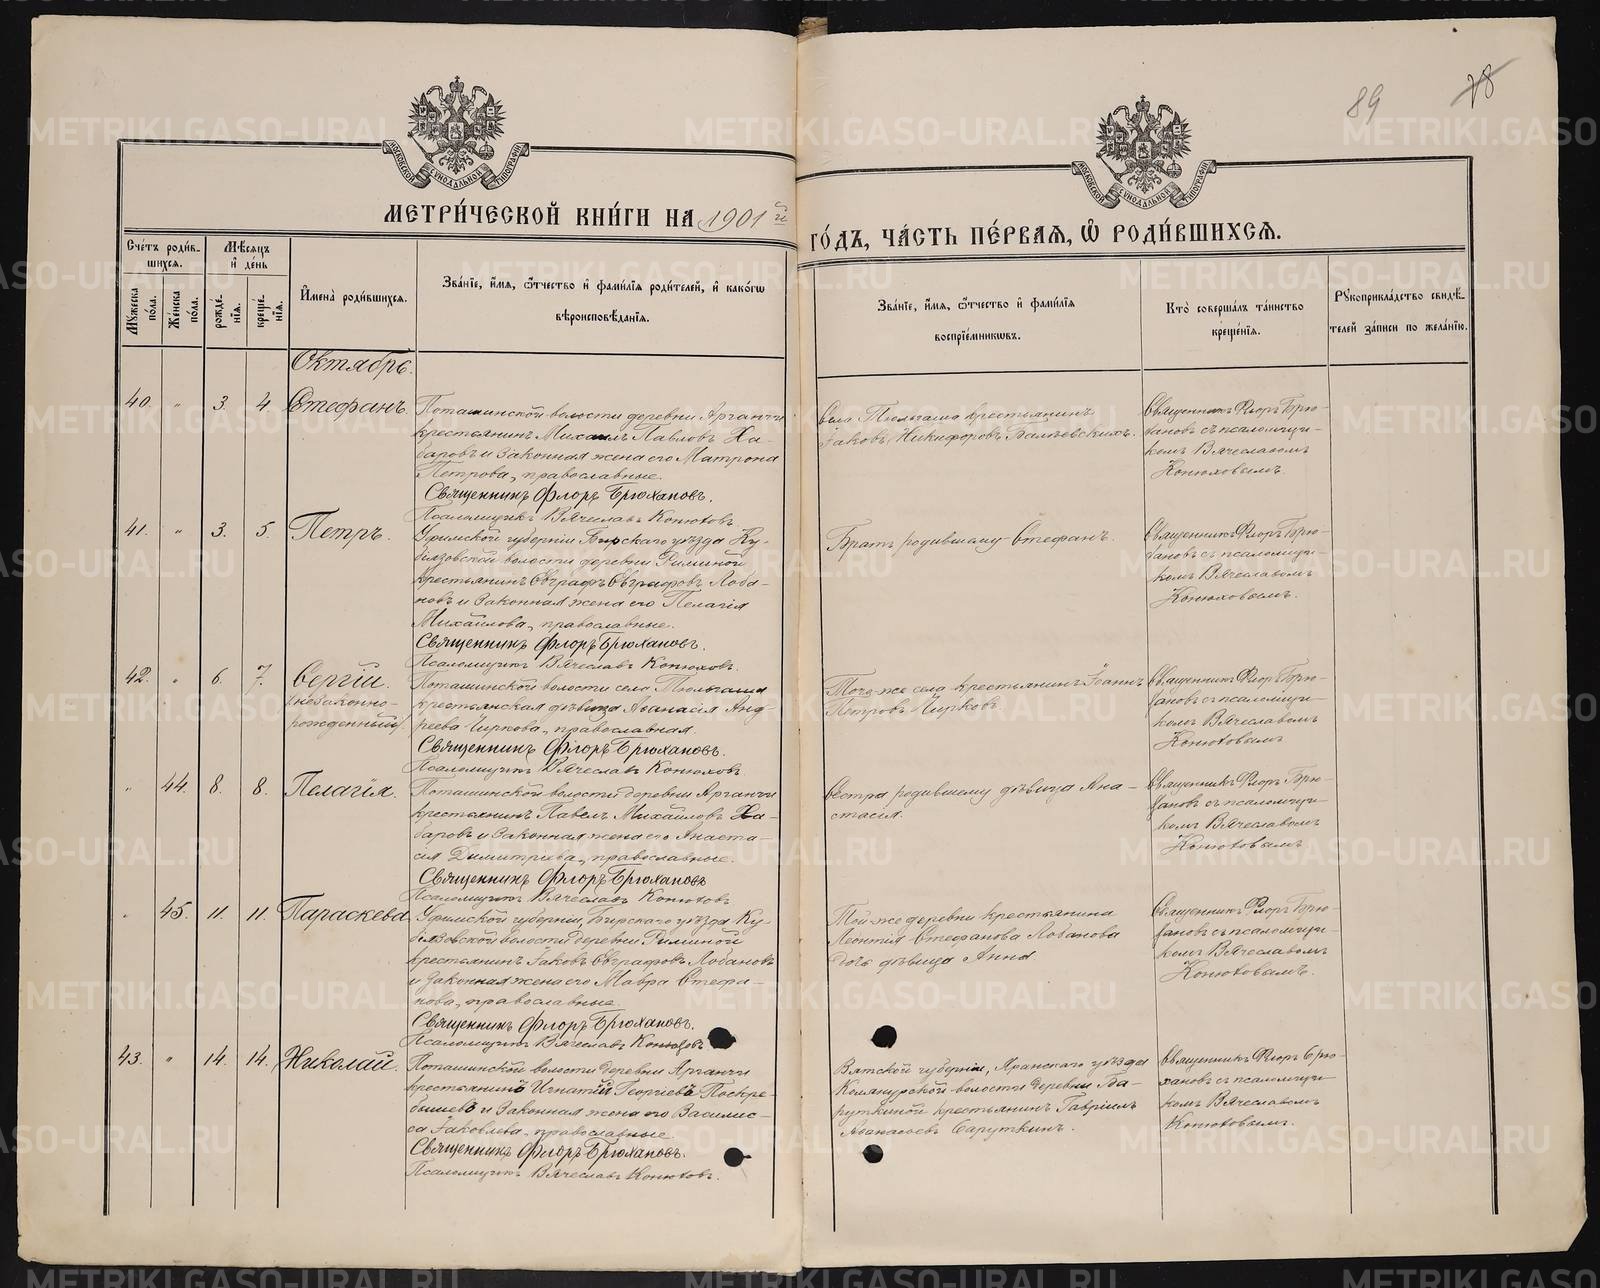 89
78
МОСКОВСКОЙ СѴНОДАЛЬНОЙ ТИПОГРАФІИ
МОСКОВСКОЙ СѴНОДАЛЬНОЙ ТИПОГРАФІИ
МЕТРИ́ЧЕСКОЙ КНИ́ГИ НА 1901 й
ГО́ДЪ, ЧА́СТЬ ПЕ́РВАѦ, Ѽ РОДИ́ВШИХСѦ.
Сче́тъ роди́в-
шихсѧ.
Мꙋжеска по́ла.
Же́нска по́ла.
Мѣ́сѧцъ
и҆ де́нь
рожде́-
нїѧ.
креще́-
нїѧ.
И҆мена̀ роди́вшихсѧ.
Зва́нїе, и҆́мѧ, ѻ҆́тчество и҆ фами́лїѧ роди́телей, и҆ како́гѡ
вѣроисповѣ́данїѧ.
Зва́нїе, и҆́мѧ, ѻ҆́тчество и҆ фами́лїѧ
воспрїе́мникѡвъ.
Кто̀ соверша́лъ та́инство
креще́нїѧ.
Рꙋкоприкла́дство свидѣ́-
телей за́писи по жела́нїю.
Октябрь.
40. " 3. 4. Стефанъ.
Поташинской волости деревни Арганчи
крестьянинъ Михаилъ Павловъ Ха-
баровъ и законная жена его Матрона
Петрова, православные.
Священникъ Флоръ Брюхановъ.
Псаломщикъ Вячеславъ Конюховъ
Села Тюльгаша крестьянинъ
Іаковъ Никифоровъ
Священникъ Флоръ Брю-
хановъ съ псаломщи-
комъ Вячеславомъ
Конюховымъ.
41. " 3. 5. Петръ.
Уфимской губерніи Бирскаго уѣзда Ку-
біязовской волости деревни
крестьянинъ Евграфъ Евграфовъ Лоба-
новъ и законная жена его Пелагія
Михайлова, православные.
Священникъ Флоръ Брюхановъ.
Псаломщикъ Вячеславъ Конюховъ.
Братъ родившему Стефанъ.
Священникъ Флоръ Брю-
хановъ съ псаломщи-
комъ Вячеславомъ
Конюховымъ.
42. " 6. 7. Сергій.
(незаконно-
рожденный)
Поташинской волости села Тюльгаша
крестьянская дѣвица Аѳанасія Анд-
реева Чиркова, православная.
Священникъ Флоръ Брюхановъ.
Псаломщикъ Вячеславъ Конюховъ
Того-же села крестьянинъ Іоаннъ
Петровъ Чирковъ.
Священникъ Флоръ Брю-
хановъ съ псаломщи-
комъ Вячеславомъ
Конюховымъ
" 44. 8. 8. Пелагія.
Поташинской волости деревни Арганчи
крестьянинъ Павелъ Михайловъ Ха-
баровъ и законная жена его Анаста-
сія Димитріева, православные.
Священникъ Флоръ Брюхановъ
Псаломщикъ Вячеславъ Конюховъ
Сестра родившему дѣвица Ана-
стасія.
Священникъ Флоръ Брю-
хановъ съ псаломщи-
комъ Вячеславомъ
Конюховымъ
" 45. 11. 11. Параскева
Уфимской губерніи, Бирскаго уѣзда Ку-
біязовской волости деревни
крестьянинъ Іаковъ Евграфовъ Лобановъ
и законная жена его Мавра Стефа-
нова, православные.
Священникъ Флоръ Брюхановъ.
Псаломщикъ Вячеславъ Конюховъ
Той-же деревни крестьянина
Леонтія Стефанова Лобанова
дочь дѣвица Анна.
Священникъ Флоръ Брю-
хановъ съ псаломщи-
комъ Вячеславомъ
Конюховымъ.
43. " 14. 14. Николай.
Поташинской волости деревни Арганчи
крестьянинъ Игнатій Георгіевъ Поскре-
бышевъ и законная жена его Василис-
са Іаковлева, православные.
Священникъ Флоръ Брюхановъ.
Псаломщикъ Вячеславъ Конюховъ.
Вятской губерніи, Яранскаго уѣзда
Комануурской волости деревни Ба-
руткиной крестьянинъ Гавріилъ
Аѳанасьевъ Саруткинъ.
Священникъ Флоръ Брю-
хановъ съ псаломщи-
комъ Вячеславомъ
Конюховымъ.
METRIKI.GASO-URAL.RU